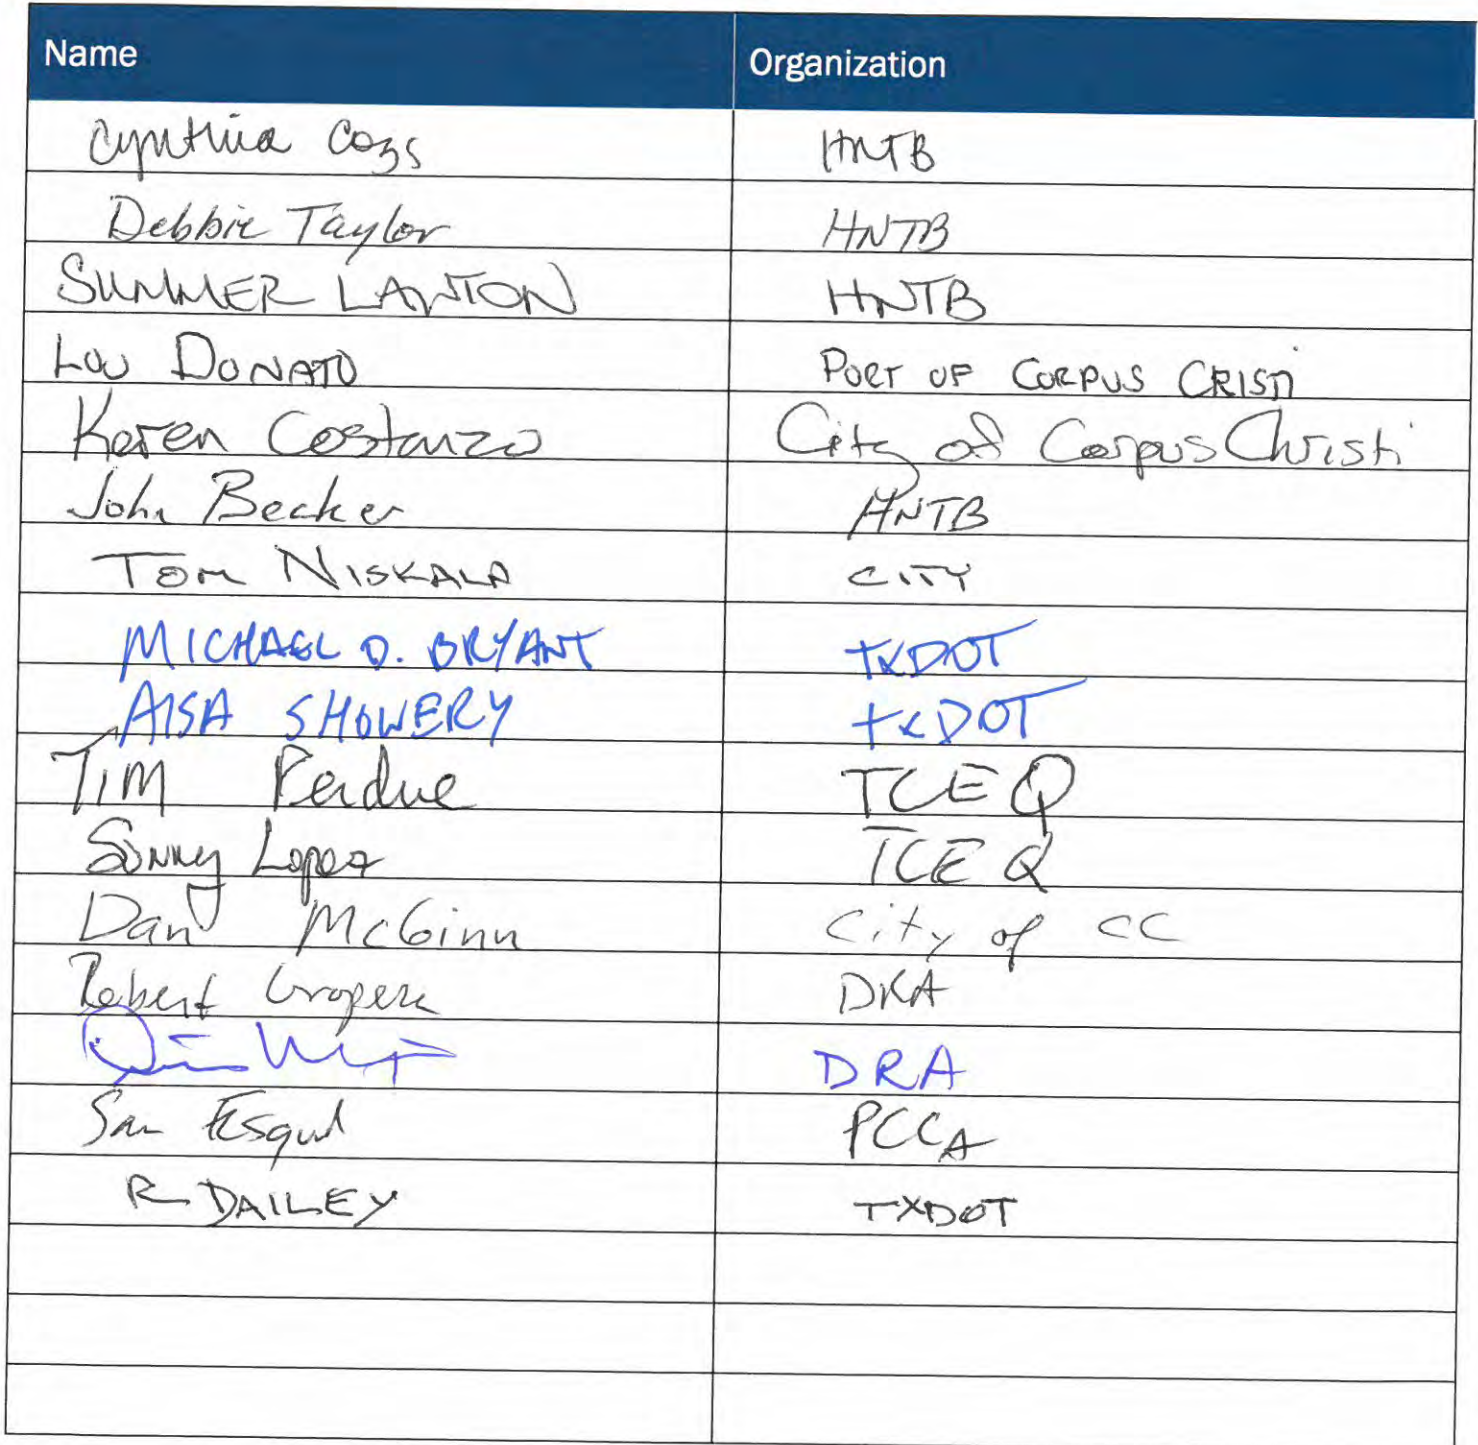 Name Organization
Cynthia HNTB
Debbie Taylor HNTB
SUMMER LAWTON HNTB
LOU DONATO PORT OF CORPUS CRISTI
Karen Costanzo City of Corpus Christi
John Becker HNTB
TOM NISKALA CITY
MICHAEL D. BRYANT TXDOT
AISA SHOWERY txDOT
TIM Perdue TCEQ
Sonny Lopez TCEQ
Dan McGinn City of CC
Robert DRA
DRA
PCCA
R DAILEY TXDOT